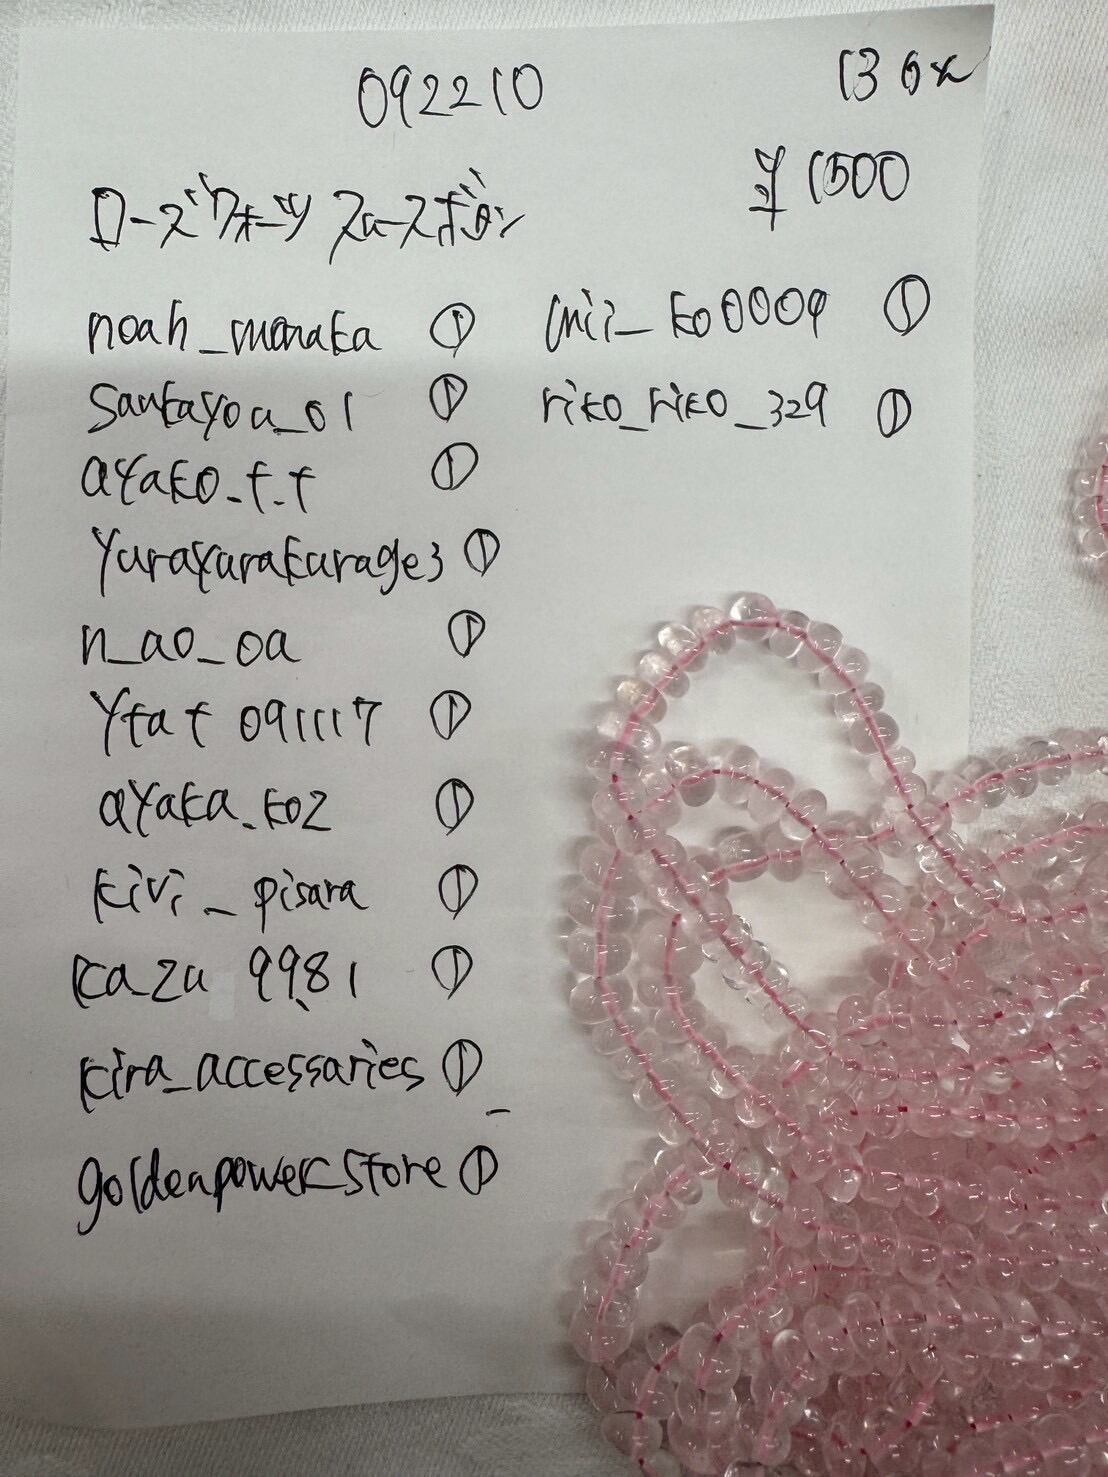 092210
¥1500
ローズクォーツ スムースボタン
noah_manaka ①
santayou_01 ①
ayako_t_t ①
yurayurakurage3 ①
n_ao_oa ①
ytat091117 ①
ayaka_k02 ①
kivi_pisara ①
kazu 9981 ①
kira_accessaries ①
goldenpowerstore ①
mii_ko0009 ①
riko_riko_329 ①